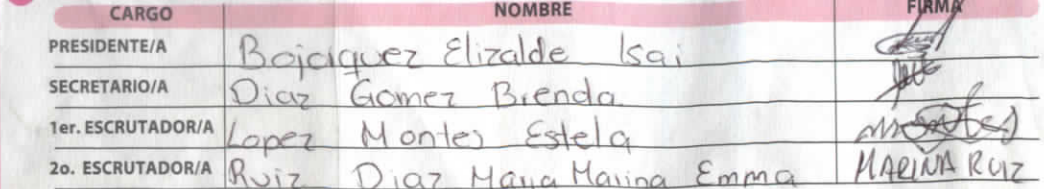 CARGO NOMBRE FIRMA
PRESIDENTE/A Bojorquez Elizalde Isai
SECRETARIO/A Diaz Gomez Brenda
1er. ESCRUTADOR/A Lopez Montes Estela
2o. ESCRUTADOR/A Ruiz Diaz Maria Marina Emma MARINA RUIZ